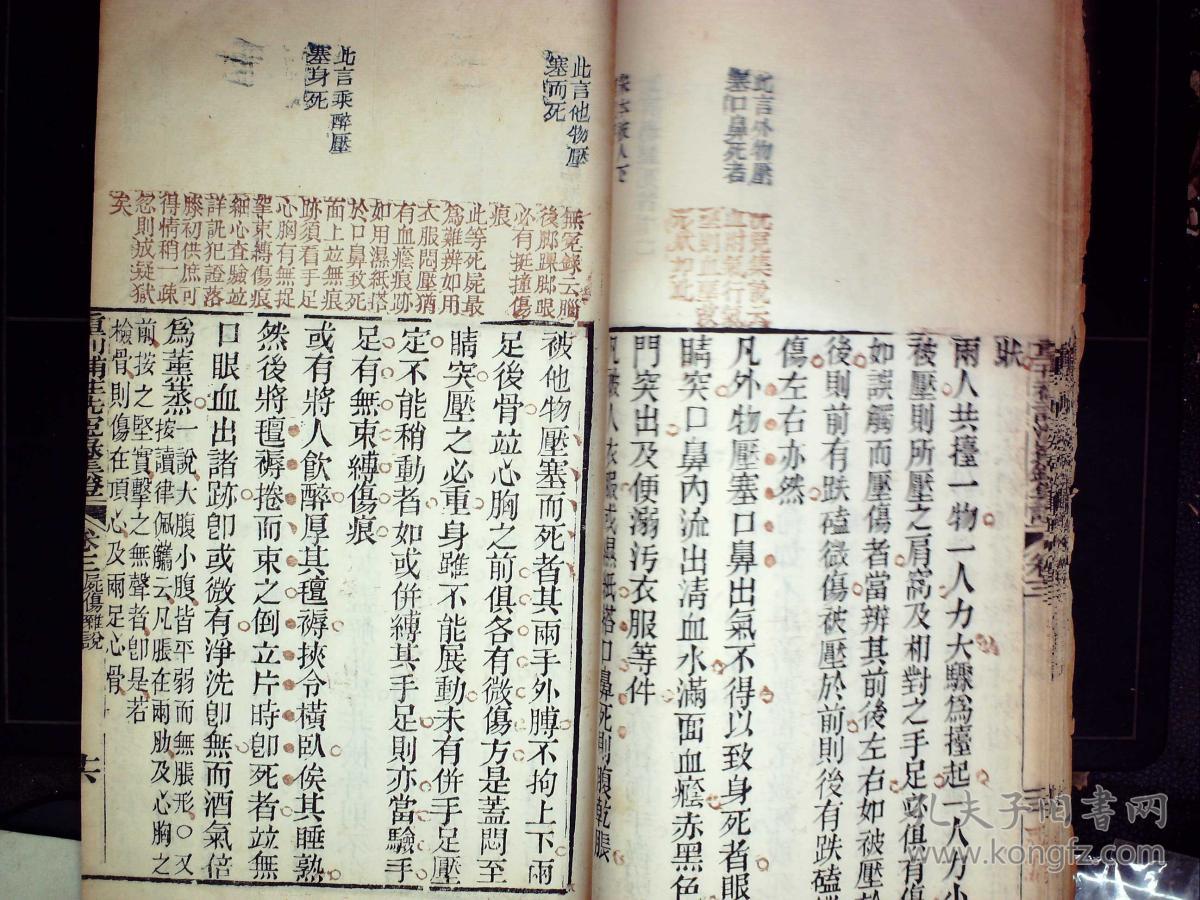 狀
兩人共擡一物一人力大驟爲擡起一人力小
被壓則所壓之肩窩及相對之手足或俱有傷
如誤觸而壓傷者當辨其前後左右如被壓於
後則前有跌磕微傷被壓於前則後有跌磕
傷左右亦然
凡外物壓塞口鼻出氣不得以致身死者眼
睛突口鼻內流出清血水滿面血癊赤黑色
門突出及便溺污衣服等件
凡被人衣服或濕紙搭口鼻死則腹乾脹
此言外物壓
塞口鼻死者
卷三
被他物壓塞而死者其兩手外膊不拘上下兩
足後骨竝心胸之前俱各有微傷方是蓋悶至
睛突壓之必重身雖不能展動未有併手足壓
定不能稍動者如或併縛其手足則亦當驗手
足有無束縛傷痕
或有將人飲醉厚其氊褥挾令橫臥俟其睡熟
然後將氊褥捲而束之倒立片時卽死者竝無
口眼血出諸跡卽或微有淨洗卽無而酒氣倍
爲薰蒸一說大腹小腹皆平弱而無脹形○又
按讀律佩觿云凡脹在兩肋及心胸之
前按之堅實擊之無聲者卽是若
檢骨則傷在頂心及兩足心骨
此言他物壓
塞而死
此言乘醉壓
塞身死
無冤錄云腦
後脚踝脚眼
必有挺撞傷
痕
此等死屍最
爲難辨如用
衣服悶壓猶
有血癊痕跡
如用濕紙搭
於口鼻致死
面上竝無痕
跡須看手足
心胸有無捉
拏束縛傷痕
細心查驗竝
詳訊犯證落
膝初供庶可
得情稍一疎
忽則成疑獄
矣
重刊補註洗冤錄集證
卷三 屍傷雜說
六
孔夫子旧书网
www.kongfz.com